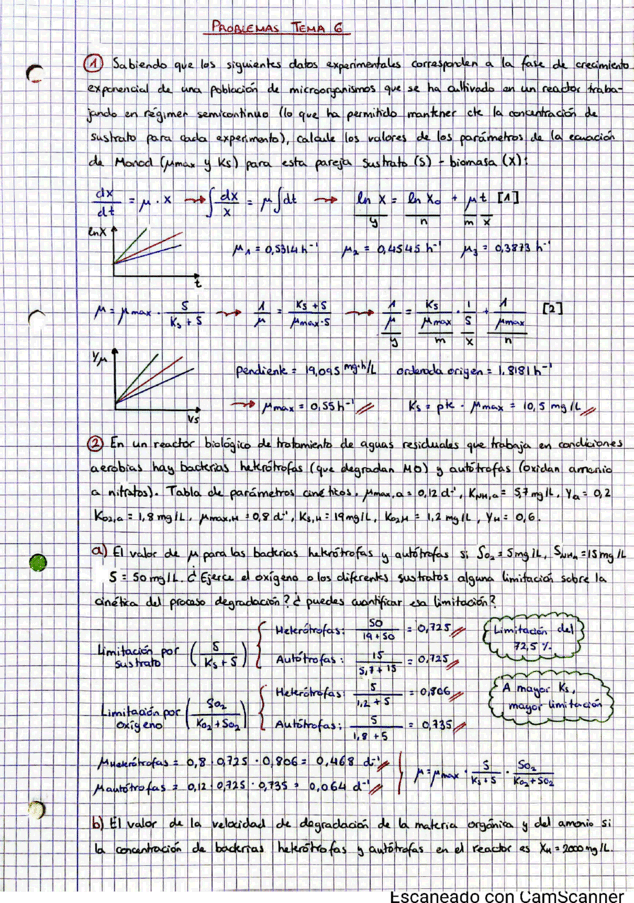 PROBLEMAS TEMA 6
① Sabiendo que los siguientes datos experimentales corresponden a la fase de crecimiento
exponencial de una población de microorganismos que se ha cultivado en un reactor traba-
jando en régimen semicontinuo (lo que ha permitido mantener cte la concentración de
sustrato para cada experimento), calcule los valores de los parámetros de la ecuación
de Monod (μmax y Ks) para esta pareja sustrato (S) - biomasa (X):
dx/dt = μ · X → ∫ dx/X = μ ∫ dt → ln X = ln X₀ + μ t [1]
y n m x
ln X
t
μ₁ = 0,5314 h⁻¹ μ₂ = 0,4545 h⁻¹ μ₃ = 0,3873 h⁻¹
μ = μmax · S/(Ks + S) → 1/μ = (Ks + S)/(μmax · S) → 1/μ = Ks/μmax · 1/S + 1/μmax [2]
y m x n
1/μ
1/S
pendiente = 19,095 mg·h/L ordenada origen = 1,8181 h⁻¹
→ μmax = 0,55 h⁻¹ Ks = pte · μmax = 10,5 mg/L
② En un reactor biológico de tratamiento de aguas residuales que trabaja en condiciones
aerobias hay bacterias heterótrofas (que degradan MO) y autótrofas (oxidan amonio
a nitratos). Tabla de parámetros cinéticos. μmax,a = 0,12 d⁻¹, KNH,a = 5,7 mg/L, Ya = 0,2
KO2,a = 1,8 mg/L, μmax,H = 0,8 d⁻¹, Ks,H = 19 mg/L, KO2,H = 1,2 mg/L, YH = 0,6.
a) El valor de μ para las bacterias heterótrofas y autótrofas si SO₂ = 5 mg/L, SNH4 = 15 mg/L
S = 50 mg/L. ¿Ejerce el oxígeno o los diferentes sustratos alguna limitación sobre la
cinética del proceso degradación? ¿puedes cuantificar esa limitación?
Limitación por sustrato (S/(Ks + S))
Heterótrofas: 50/(19 + 50) = 0,725
Autótrofas: 15/(5,7 + 15) = 0,725
Limitación del
72,5 %.
Limitación por oxígeno (SO₂/(KO₂ + SO₂))
Heterótrofas: 5/(1,2 + 5) = 0,806
Autótrofas: 5/(1,8 + 5) = 0,735
A mayor Ks,
mayor limitación
μheterótrofas = 0,8 · 0,725 · 0,806 = 0,468 d⁻¹
μautótrofas = 0,12 · 0,725 · 0,735 = 0,064 d⁻¹
μ = μmax · S/(Ks + S) · SO₂/(KO₂ + SO₂)
b) El valor de la velocidad de degradación de la materia orgánica y del amonio si
la concentración de bacterias heterótrofas y autótrofas en el reactor es XH = 2000 mg/L.
Escaneado con CamScanner